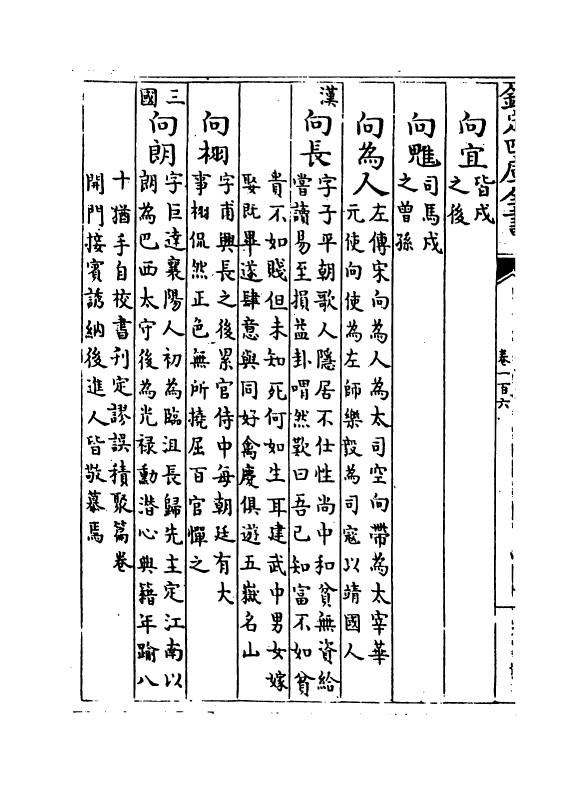 欽定四庫全書
卷一百六
向宜皆戌
之後
向魋司馬戌
之曾孫
向為人左傳宋向為人為太司空向帶為太宰華
元使向使為左師樂㲄為司寇以靖國人
漢
向長字子平朝歌人隱居不仕性尚中和貧無資給
嘗讀易至損益卦喟然歎曰吾已知富不如貧
貴不如賤但未知死何如生耳建武中男女嫁
娶既畢遂肆意與同好禽慶俱遊五嶽名山
向栩字甫興長之後累官侍中每朝廷有大
事栩侃然正色無所撓屈百官憚之
三國
向朗字巨達襄陽人初為臨沮長歸先主定江南以
朗為巴西太守後為光禄勳潜心典籍年踰八
十猶手自校書刋定謬誤積聚篇卷
開門接賓誘納後進人皆敬慕焉